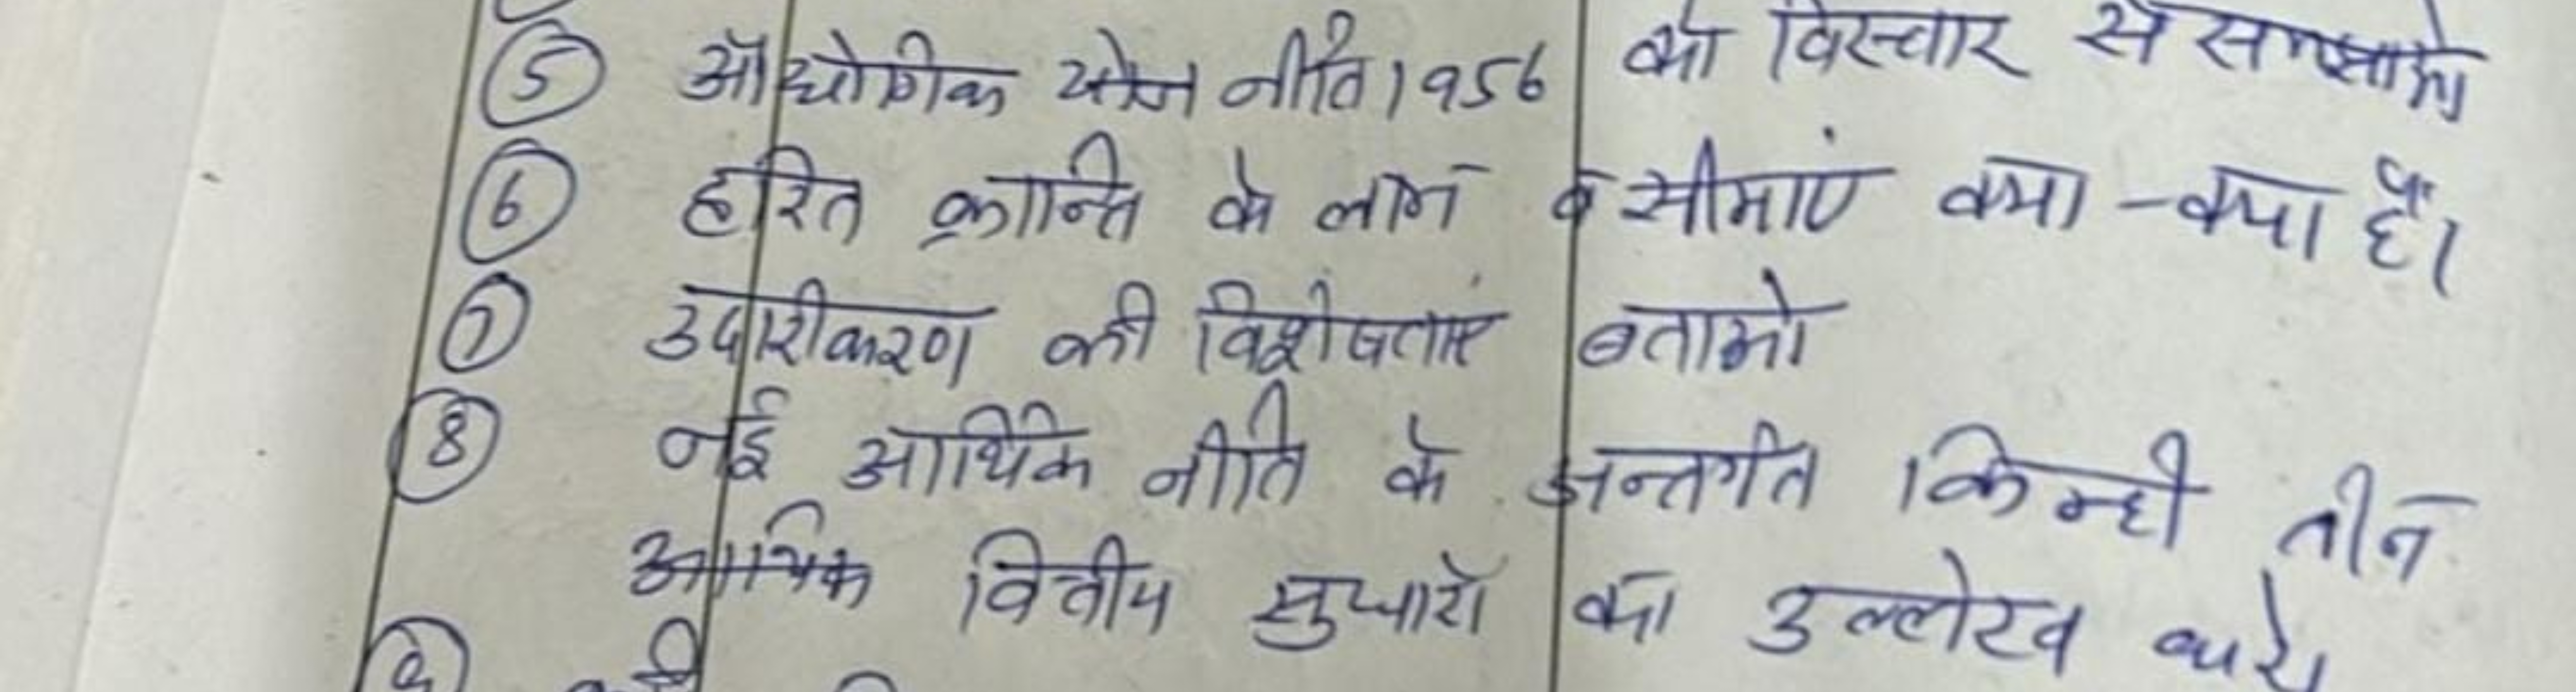 ⑤ औद्योगिक नीति 1956 को विस्तार से समझाओ
⑥ हरित क्रान्ति के लाभ व सीमाएं क्या-क्या हैं।
⑦ उदारीकरण की विशेषताएं बताओ
⑧ नई आर्थिक नीति के अन्तर्गत किन्ही तीन
आर्थिक वित्तीय सुधारों का उल्लेख करे।
⑨